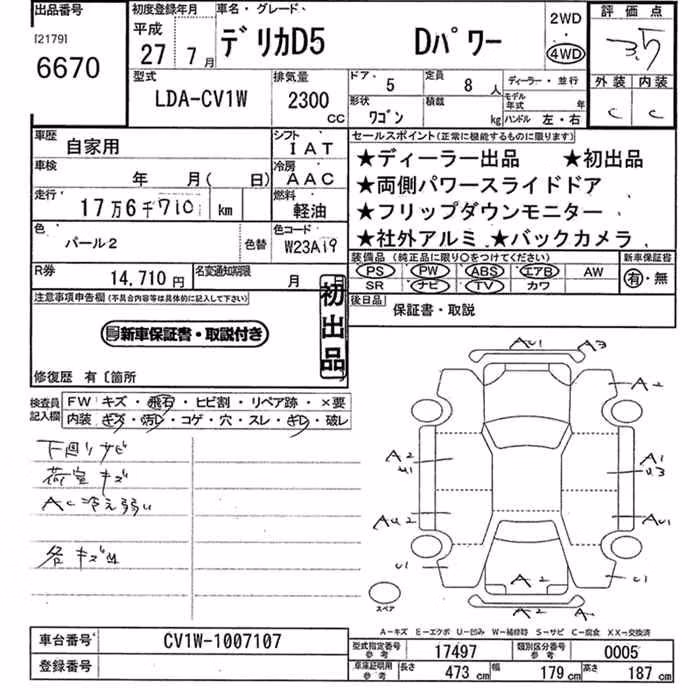 出品番号 初度登録年月 車名・グレード、 2WD 評価点
[2179] 平成
6670 27年 7月 デリカD5 Dパワー 4WD 3.5
型式 排気量 ドア・ 5 定員 8人 ディーラー・並行 外装 内装
LDA-CV1W 2300cc 形状 ワゴン 積載 kg モデル年式 年 ハンドル 左・右 C C
車歴 自家用 シフト IAT セールスポイント(正常に機能するものに限ります)
車検 年 月( 日) 冷房 AAC ★ディーラー出品 ★初出品
走行 17万6千710 km 燃料 軽油 ★両側パワースライドドア
★フリップダウンモニター
色 パール2 色替 色コード W23A19 ★社外アルミ ★バックカメラ
装備品(純正品に限り○をつけてください) 新車保証書
R券 14,710円 名変通知期限 月 PS PW ABS エアB AW 有・無
SR ナビ TV カワ
注意事項申告欄(不具合内容等は具体的に記入して下さい) 初出品 後日品 保証書・取説
新車保証書・取説付き
修復歴 有〔箇所
検査員記入欄 FW キズ・飛石・ヒビ割・リペア跡・×要
内装 キズ・汚レ・コゲ・穴・スレ・キレ・破レ
下回りサビ
荷室キズ
AC冷え弱い
各キズ凹
AU1 A3
A2
A2 U1 A1 U3
AU2 AU1
U1 A2 U1
A2 A
スペア
A-キズ E-エクボ U-凹み W-補修跡 S-サビ C-腐食 XX-交換済
車台番号 CV1W-1007107 型式指定番号参考 17497 類別区分番号参考 0005
登録番号 車庫証明用参考 長さ 473cm 幅 179cm 高さ 187cm